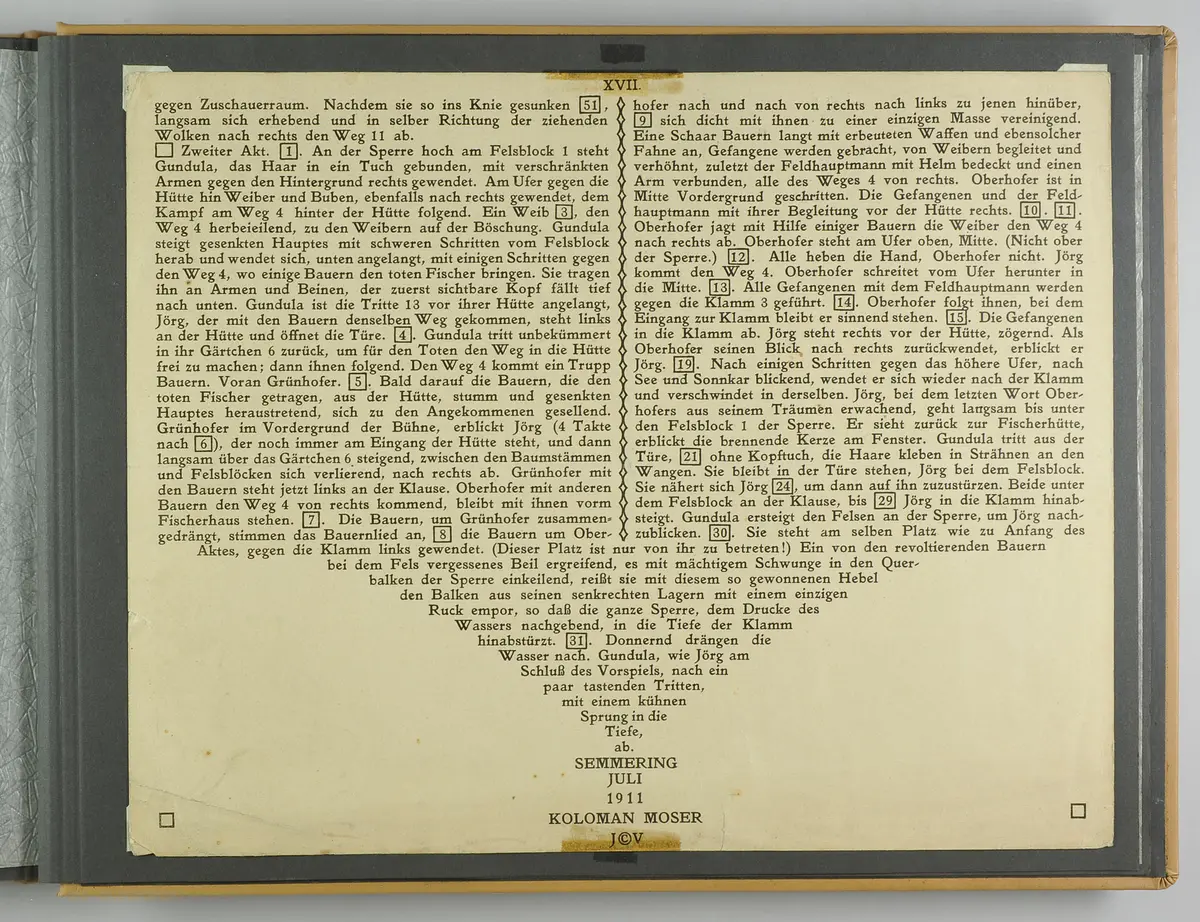 XVII.
gegen Zuschauerraum. Nachdem sie so ins Knie gesunken 51,
langsam sich erhebend und in selber Richtung der ziehenden
Wolken nach rechts den Weg 11 ab.
☐ Zweiter Akt. 1. An der Sperre hoch am Felsblock 1 steht
Gundula, das Haar in ein Tuch gebunden, mit verschränkten
Armen gegen den Hintergrund rechts gewendet. Am Ufer gegen die
Hütte hin Weiber und Buben, ebenfalls nach rechts gewendet, dem
Kampf am Weg 4 hinter der Hütte folgend. Ein Weib 3, den
Weg 4 herbeieilend, zu den Weibern auf der Böschung. Gundula
steigt gesenkten Hauptes mit schweren Schritten vom Felsblock
herab und wendet sich, unten angelangt, mit einigen Schritten gegen
den Weg 4, wo einige Bauern den toten Fischer bringen. Sie tragen
ihn an Armen und Beinen, der zuerst sichtbare Kopf fällt tief
nach unten. Gundula ist die Tritte 13 vor ihrer Hütte angelangt,
Jörg, der mit den Bauern denselben Weg gekommen, steht links
an der Hütte und öffnet die Türe. 4. Gundula tritt unbekümmert
in ihr Gärtchen 6 zurück, um für den Toten den Weg in die Hütte
frei zu machen; dann ihnen folgend. Den Weg 4 kommt ein Trupp
Bauern. Voran Grünhofer. 5. Bald darauf die Bauern, die den
toten Fischer getragen, aus der Hütte, stumm und gesenkten
Hauptes heraustretend, sich zu den Angekommenen gesellend.
Grünhofer im Vordergrund der Bühne, erblickt Jörg (4 Takte
nach 6), der noch immer am Eingang der Hütte steht, und dann
langsam über das Gärtchen 6 steigend, zwischen den Baumstämmen
und Felsblöcken sich verlierend, nach rechts ab. Grünhofer mit
den Bauern steht jetzt links an der Klause. Oberhofer mit anderen
Bauern den Weg 4 von rechts kommend, bleibt mit ihnen vorm
Fischerhaus stehen. 7. Die Bauern, um Grünhofer zusammen-
gedrängt, stimmen das Bauernlied an, 8 die Bauern um Ober-
hofer nach und nach von rechts nach links zu jenen hinüber,
9 sich dicht mit ihnen zu einer einzigen Masse vereinigend.
Eine Schaar Bauern langt mit erbeuteten Waffen und ebensolcher
Fahne an, Gefangene werden gebracht, von Weibern begleitet und
verhöhnt, zuletzt der Feldhauptmann mit Helm bedeckt und einen
Arm verbunden, alle des Weges 4 von rechts. Oberhofer ist in
Mitte Vordergrund geschritten. Die Gefangenen und der Feld-
hauptmann mit ihrer Begleitung vor der Hütte rechts. 10. 11.
Oberhofer jagt mit Hilfe einiger Bauern die Weiber den Weg 4
nach rechts ab. Oberhofer steht am Ufer oben, Mitte. (Nicht ober
der Sperre.) 12. Alle heben die Hand, Oberhofer nicht. Jörg
kommt den Weg 4. Oberhofer schreitet vom Ufer herunter in
die Mitte. 13. Alle Gefangenen mit dem Feldhauptmann werden
gegen die Klamm 3 geführt. 14. Oberhofer folgt ihnen, bei dem
Eingang zur Klamm bleibt er sinnend stehen. 15. Die Gefangenen
in die Klamm ab. Jörg steht rechts vor der Hütte, zögernd. Als
Oberhofer seinen Blick nach rechts zurückwendet, erblickt er
Jörg. 19. Nach einigen Schritten gegen das höhere Ufer, nach
See und Sonnkar blickend, wendet er sich wieder nach der Klamm
und verschwindet in derselben. Jörg, bei dem letzten Wort Ober-
hofers aus seinem Träumen erwachend, geht langsam bis unter
den Felsblock 1 der Sperre. Er sieht zurück zur Fischerhütte,
erblickt die brennende Kerze am Fenster. Gundula tritt aus der
Türe, 21 ohne Kopftuch, die Haare kleben in Strähnen an den
Wangen. Sie bleibt in der Türe stehen, Jörg bei dem Felsblock.
Sie nähert sich Jörg 24, um dann auf ihn zuzustürzen. Beide unter
dem Felsblock an der Klause, bis 29 Jörg in die Klamm hinab-
steigt. Gundula ersteigt den Felsen an der Sperre, um Jörg nach-
zublicken. 30. Sie steht am selben Platz wie zu Anfang des
Aktes, gegen die Klamm links gewendet. (Dieser Platz ist nur von ihr zu betreten!) Ein von den revoltierenden Bauern
bei dem Fels vergessenes Beil ergreifend, es mit mächtigem Schwunge in den Quer-
balken der Sperre einkeilend, reißt sie mit diesem so gewonnenen Hebel
den Balken aus seinen senkrechten Lagern mit einem einzigen
Ruck empor, so daß die ganze Sperre, dem Drucke des
Wassers nachgebend, in die Tiefe der Klamm
hinabstürzt. 31. Donnernd drängen die
Wasser nach. Gundula, wie Jörg am
Schluß des Vorspiels, nach ein
paar tastenden Tritten,
mit einem kühnen
Sprung in die
Tiefe,
ab.
SEMMERING
JULI
1911
KOLOMAN MOSER
J©V